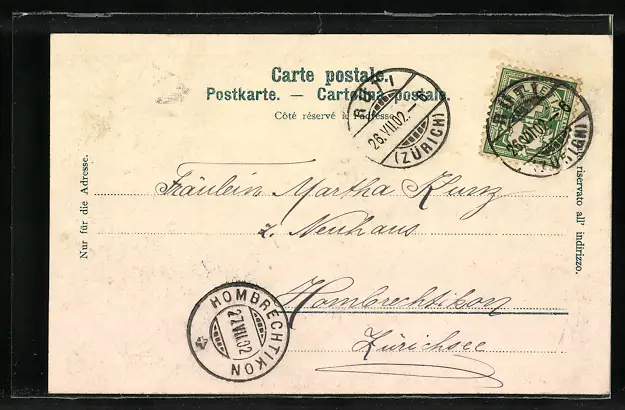 Carte postale.
Postkarte. — Cartolina postale.
Côté réservé à l'adresse
Nur für die Adresse.
riservato all' indirizzo.
RÜTI
26.VII.02.
(ZÜRICH)
RÜTI
26.VII.02.
(ZÜRICH)
Fräulein Martha Kunz
z. Neuhaus
Hombrechtikon
Zürichsee
HOMBRECHTIKON
27.VII.02